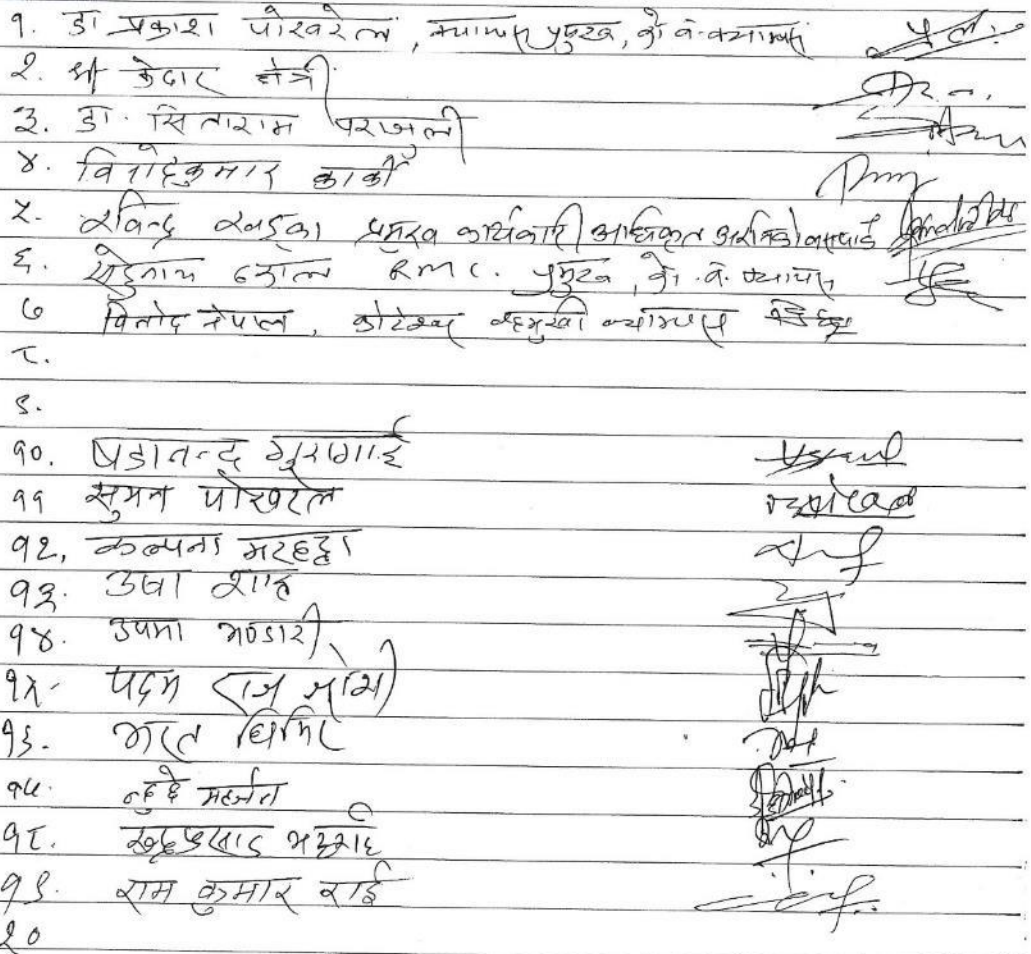 १. डा प्रकाश पोखरेल, क्याम्पस प्रमुख, को. व. क्याम्पस
२. श्री केदार क्षेत्री
३. डा. सिताराम पराजुली
४. विनोदकुमार कार्की
५. रविन्द्र खड्का प्रमुख कार्यकारी अधिकृत
६. RMC. प्रमुख, को. व. क्याम्पस
७ विनोद नेपाल, कोटेश्वर बहुमुखी क्याम्पस
८.
९.
१०. षडानन्द गुरागाई
११ सुमन पोखरेल
१२. कल्पना मरहट्टा
१३. उषा शाह
१४. उपमा भण्डारी
१५. पदम राज जोशी
१६. भरत घिमिरे
१७. न्हुछे महर्जन
१८. भट्टराई
१९. राम कुमार राई
२०